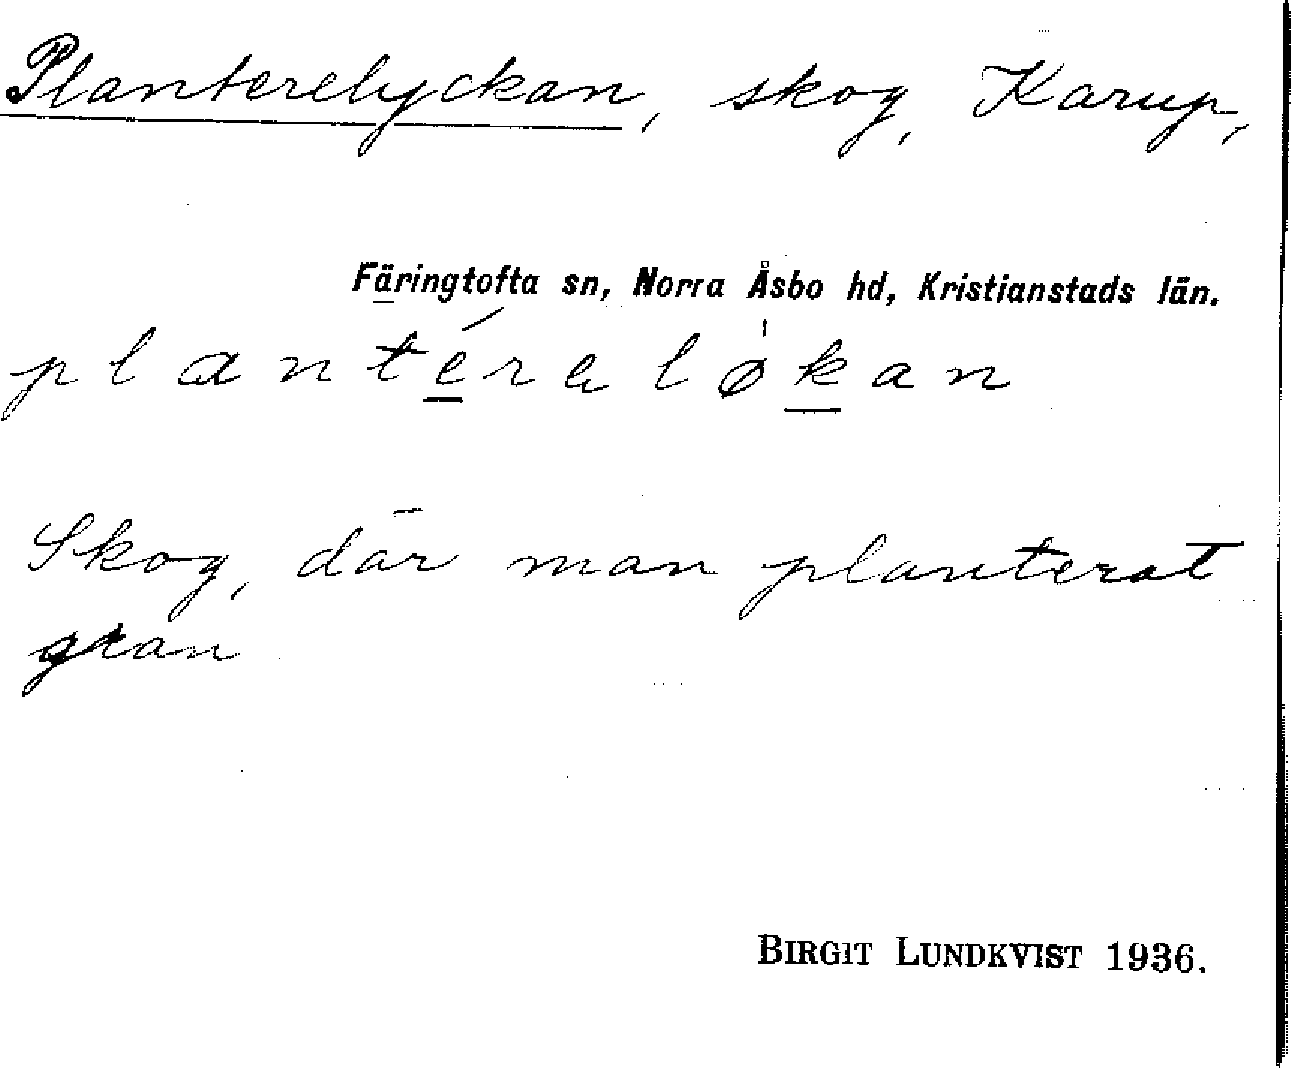 Planterelyckan, skog, Karup,
Färingtofta sn, Norra Åsbo hd, Kristianstads län.
plantérəløkan
Skog, där man planterat
gran
BIRGIT LUNDKVIST 1936.